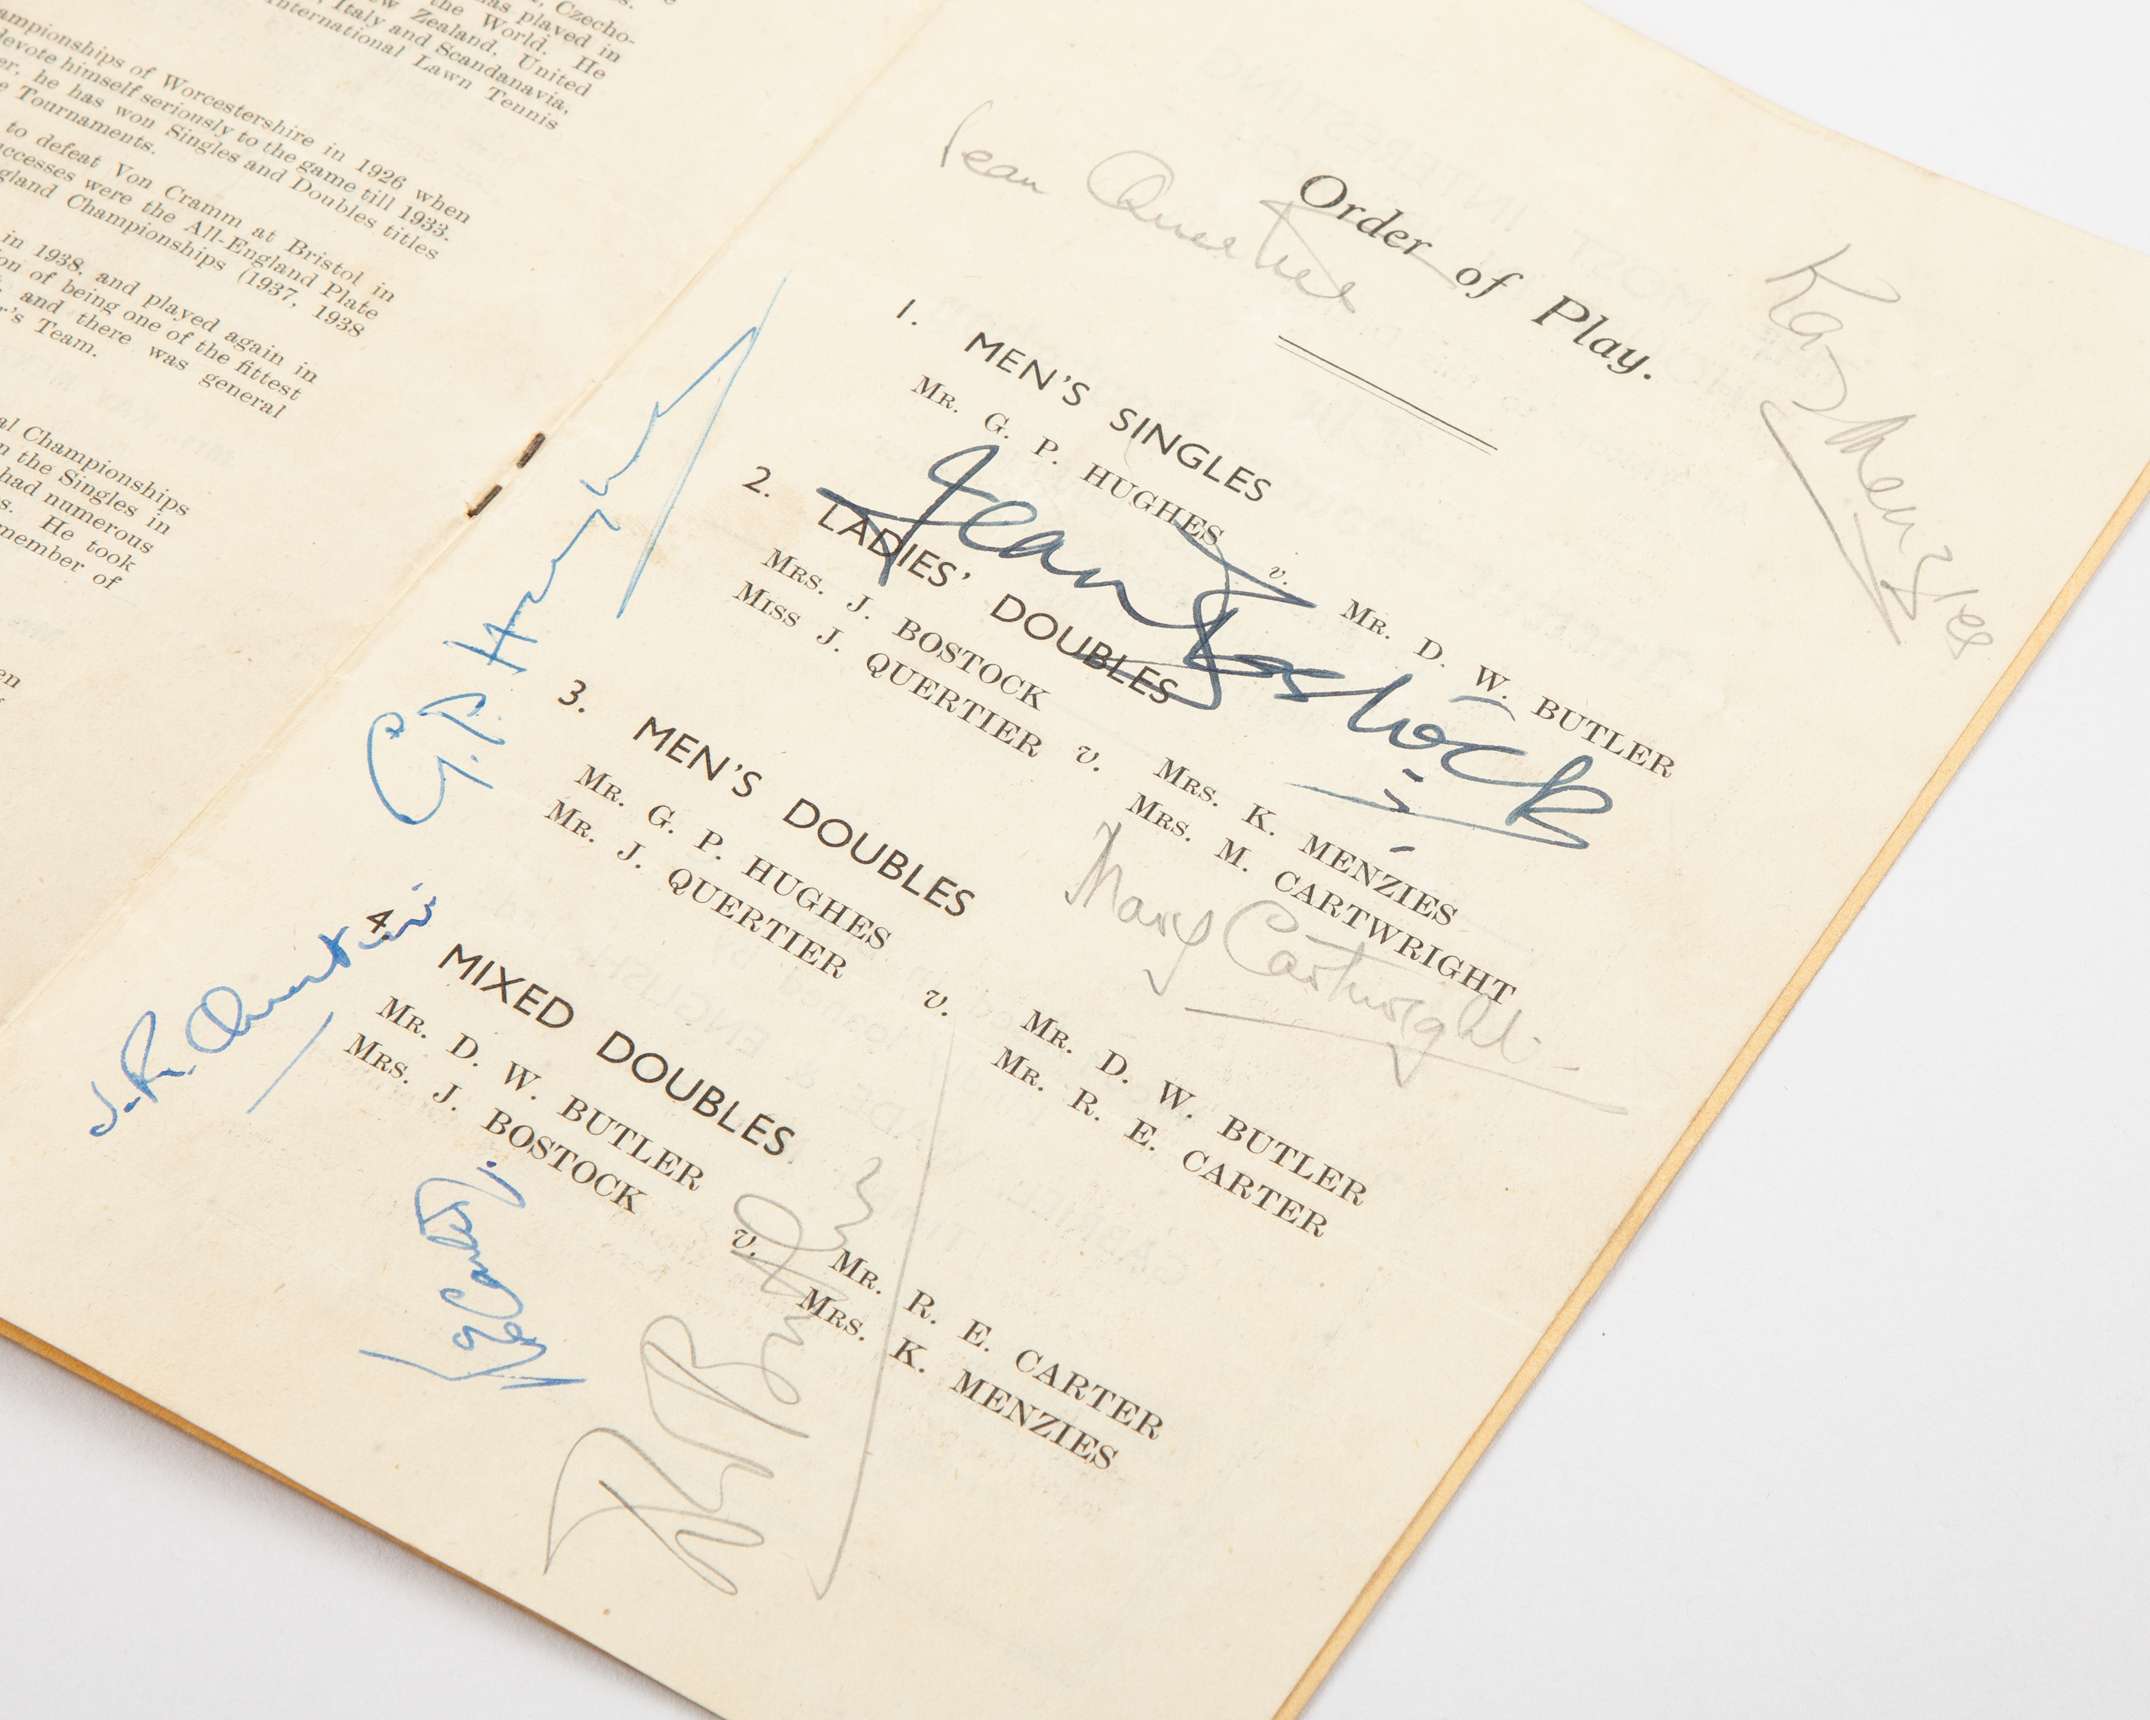 s played in
, Czecho-
the World. He
w Zealand, United
, Italy and Scandanavia,
nternational Lawn Tennis
ampionships of Worcestershire in 1926 when
devote himself seriously to the game till 1933.
er, he has won Singles and Doubles titles
e Tournaments.
to defeat Von Cramm at Bristol in
ccesses were the All-England Plate
gland Championships (1937, 1938
in 1938, and played again in
on of being one of the fittest
, and there was general
r's Team.
al Championships
n the Singles in
had numerous
s. He took
member of
en
Order of Play.
Jean Quertier
Kay Menzies
1. MEN'S SINGLES
MR. G. P. HUGHES v. MR. D. W. BUTLER
Jean Bostock
2. LADIES' DOUBLES
MRS. J. BOSTOCK
MISS J. QUERTIER v. MRS. K. MENZIES
MRS. M. CARTWRIGHT
Mary Cartwright
G. P. Hughes
3. MEN'S DOUBLES
MR. G. P. HUGHES
MR. J. QUERTIER v. MR. D. W. BUTLER
MR. R. E. CARTER
J. R. Quertier
4. MIXED DOUBLES
MR. D. W. BUTLER
MRS. J. BOSTOCK v. MR. R. E. CARTER
MRS. K. MENZIES
R E Carter
D W Butler